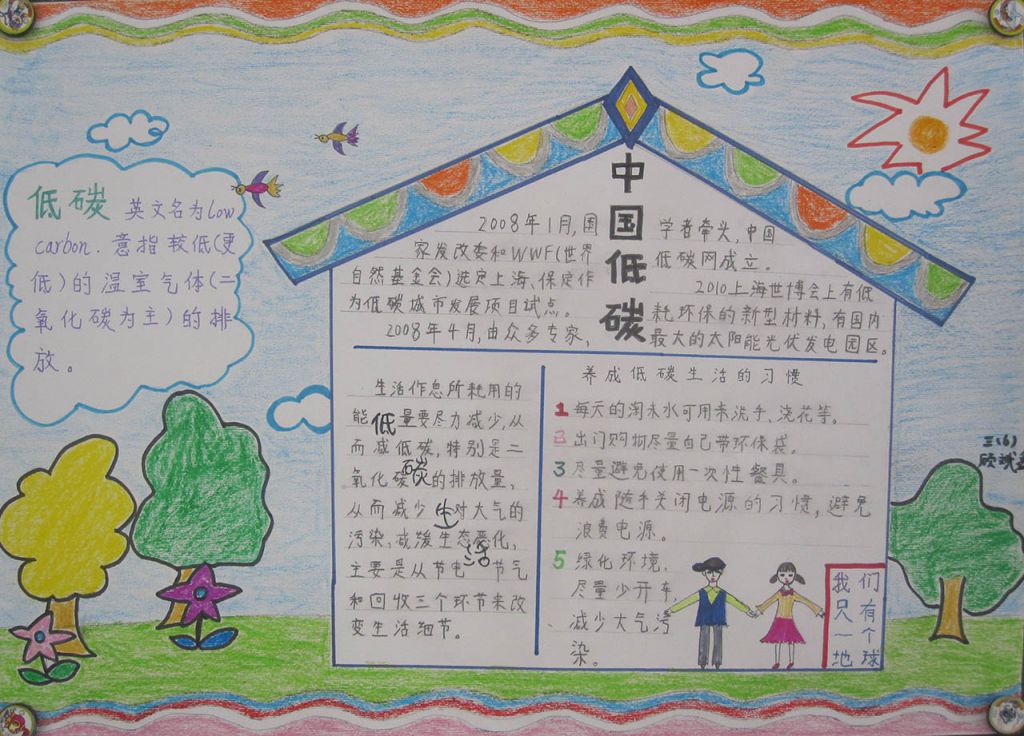 低碳 英文名为low
carbon.意指较低(更
低)的温室气体(二
氧化碳为主)的排
放。
中国低碳
2008年1月,国
家发改委和WWF(世界
自然基金会)选定上海、保定作
为低碳城市发展项目试点。
2008年4月,由众多专家,
学者牵头,中国
低碳网成立。
2010上海世博会上有低
耗环保的新型材料,有国内
最大的太阳能光伏发电园区。
低碳生活
生活作息所耗用的
能量要尽力减少,从
而减低碳,特别是二
氧化碳的排放量,
从而减少对大气的
污染,减缓生态恶化,
主要是从节电 节气
和回收三个环节来改
变生活细节。
养成低碳生活的习惯
1 每天的淘米水可用来洗手、浇花等。
2 出门购物尽量自己带环保袋。
3 尽量避免使用一次性餐具。
4 养成随手关闭电源的习惯,避免
浪费电源。
5 绿化环境,
尽量少开车,
减少大气污
染。
我们
只有
一个
地球
三(6)